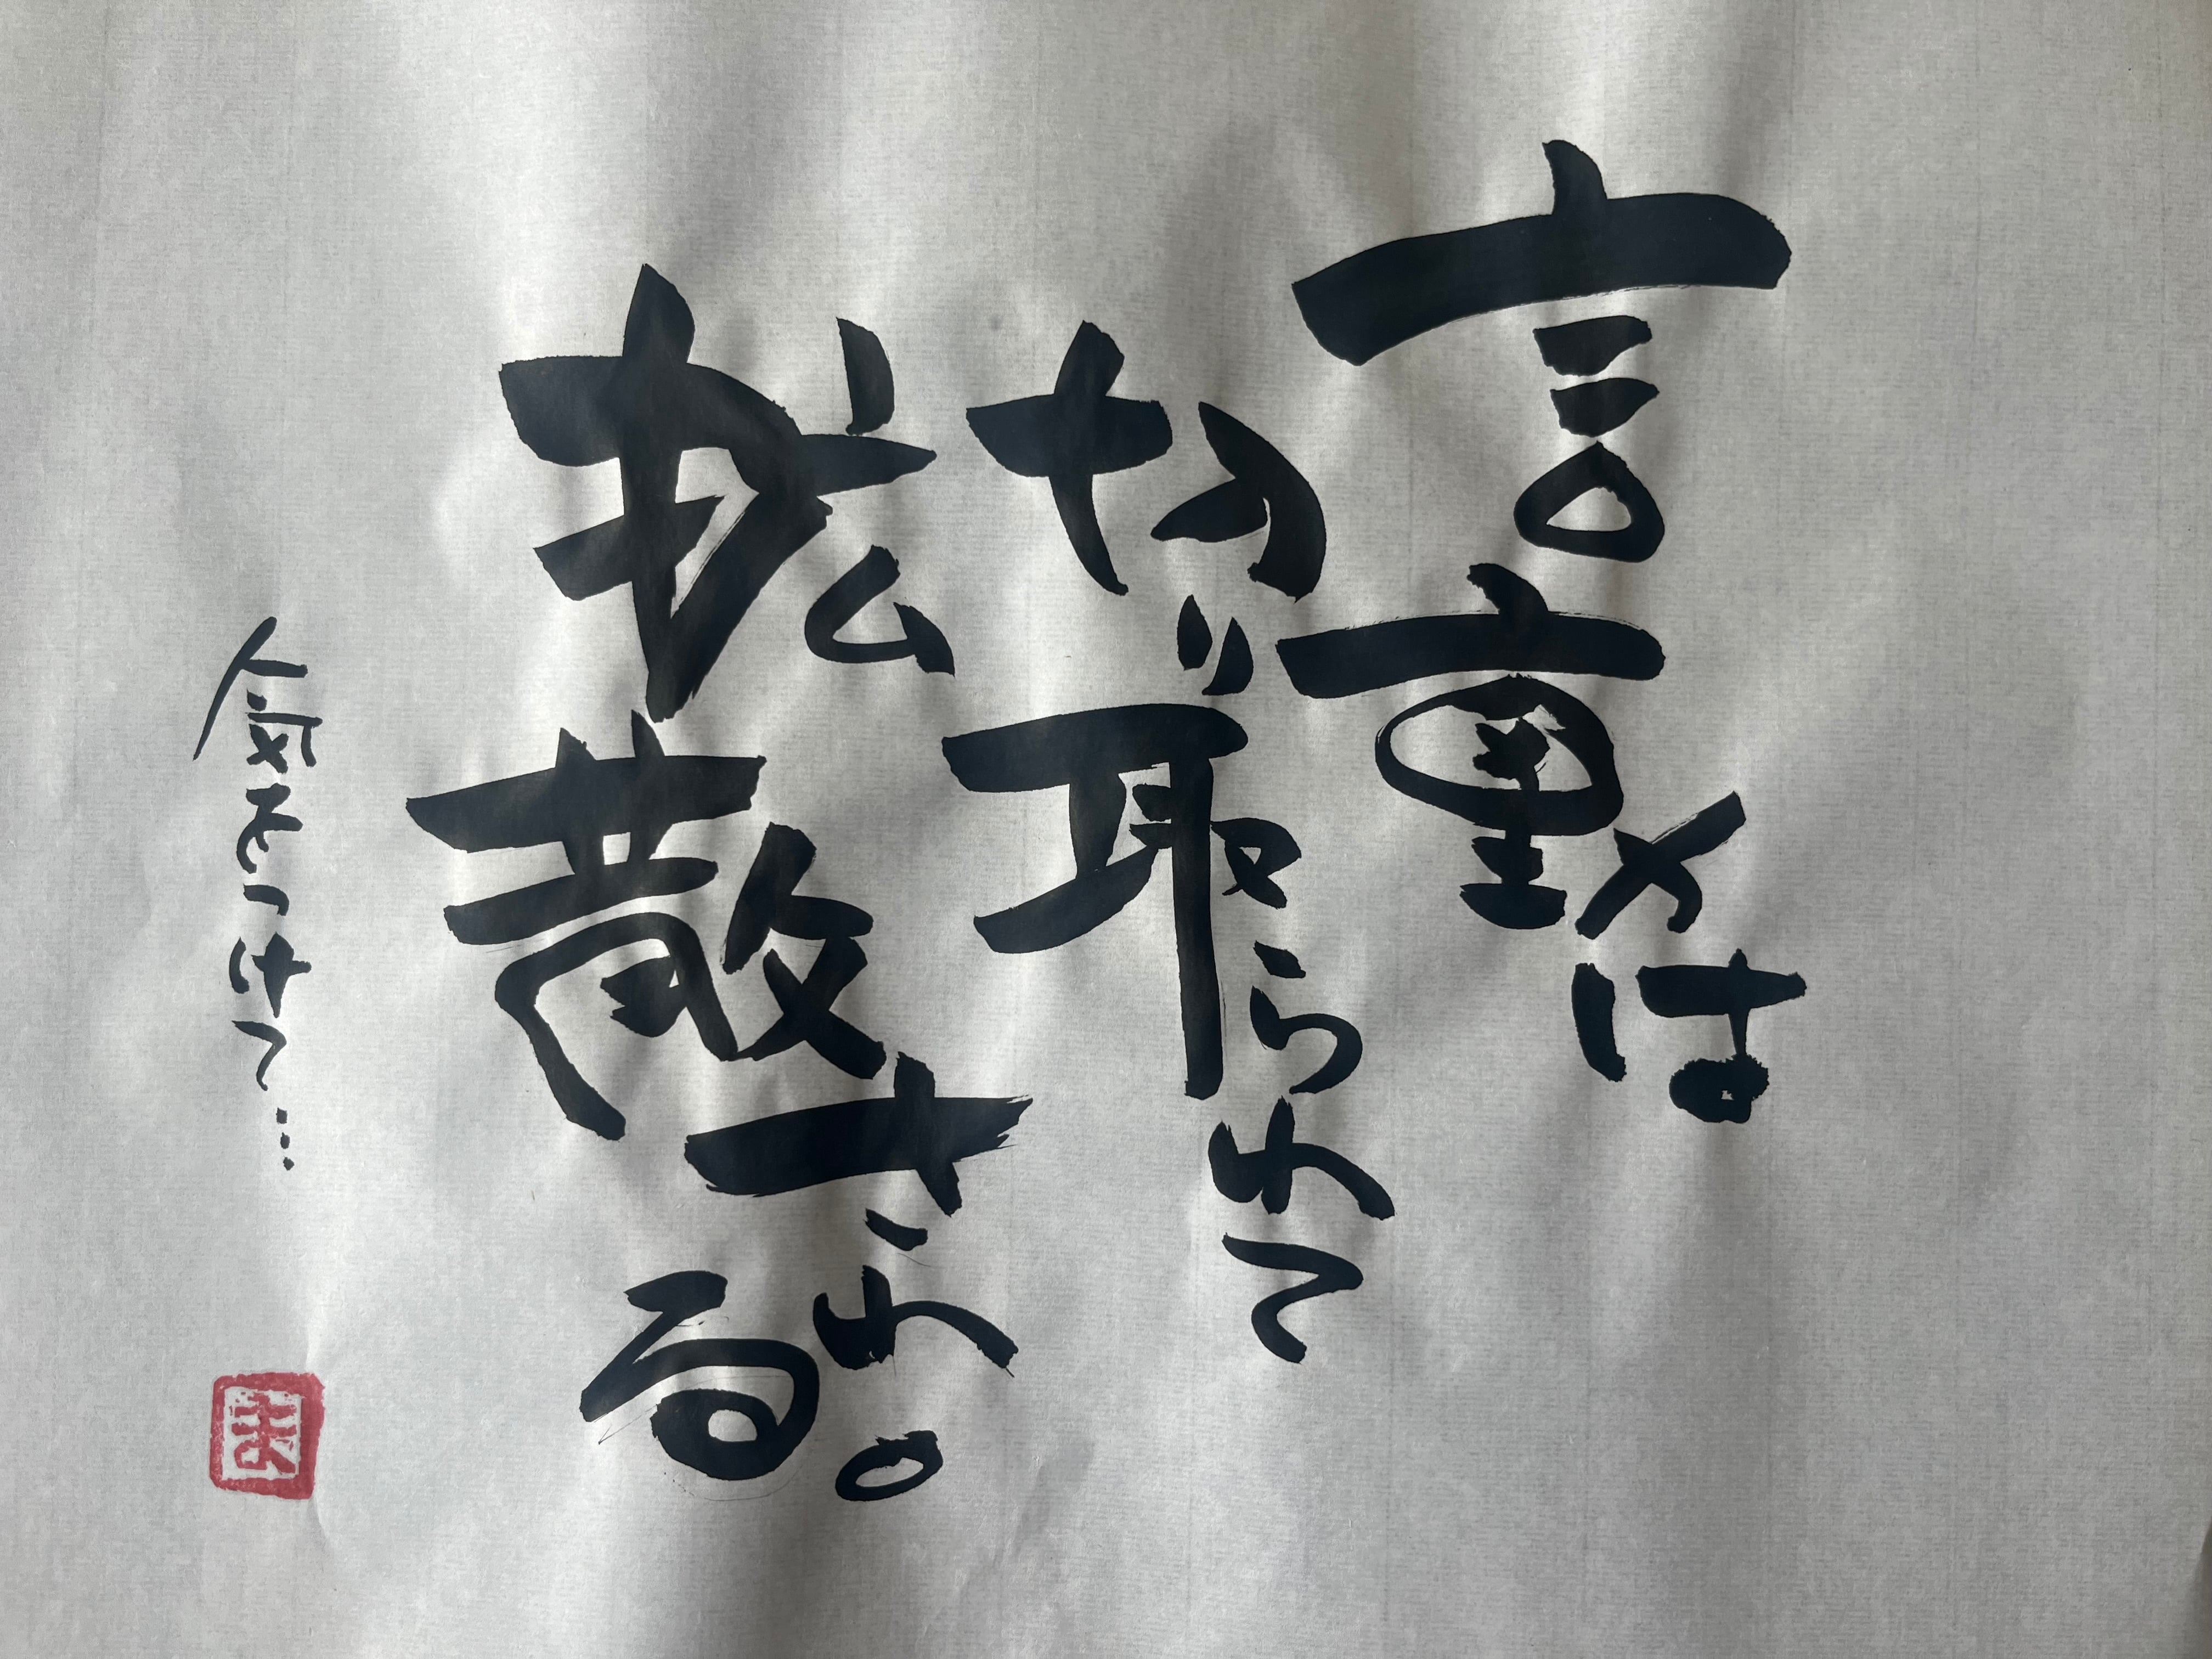 言動は
切り取られて
拡散される。
気をつけて…
ま